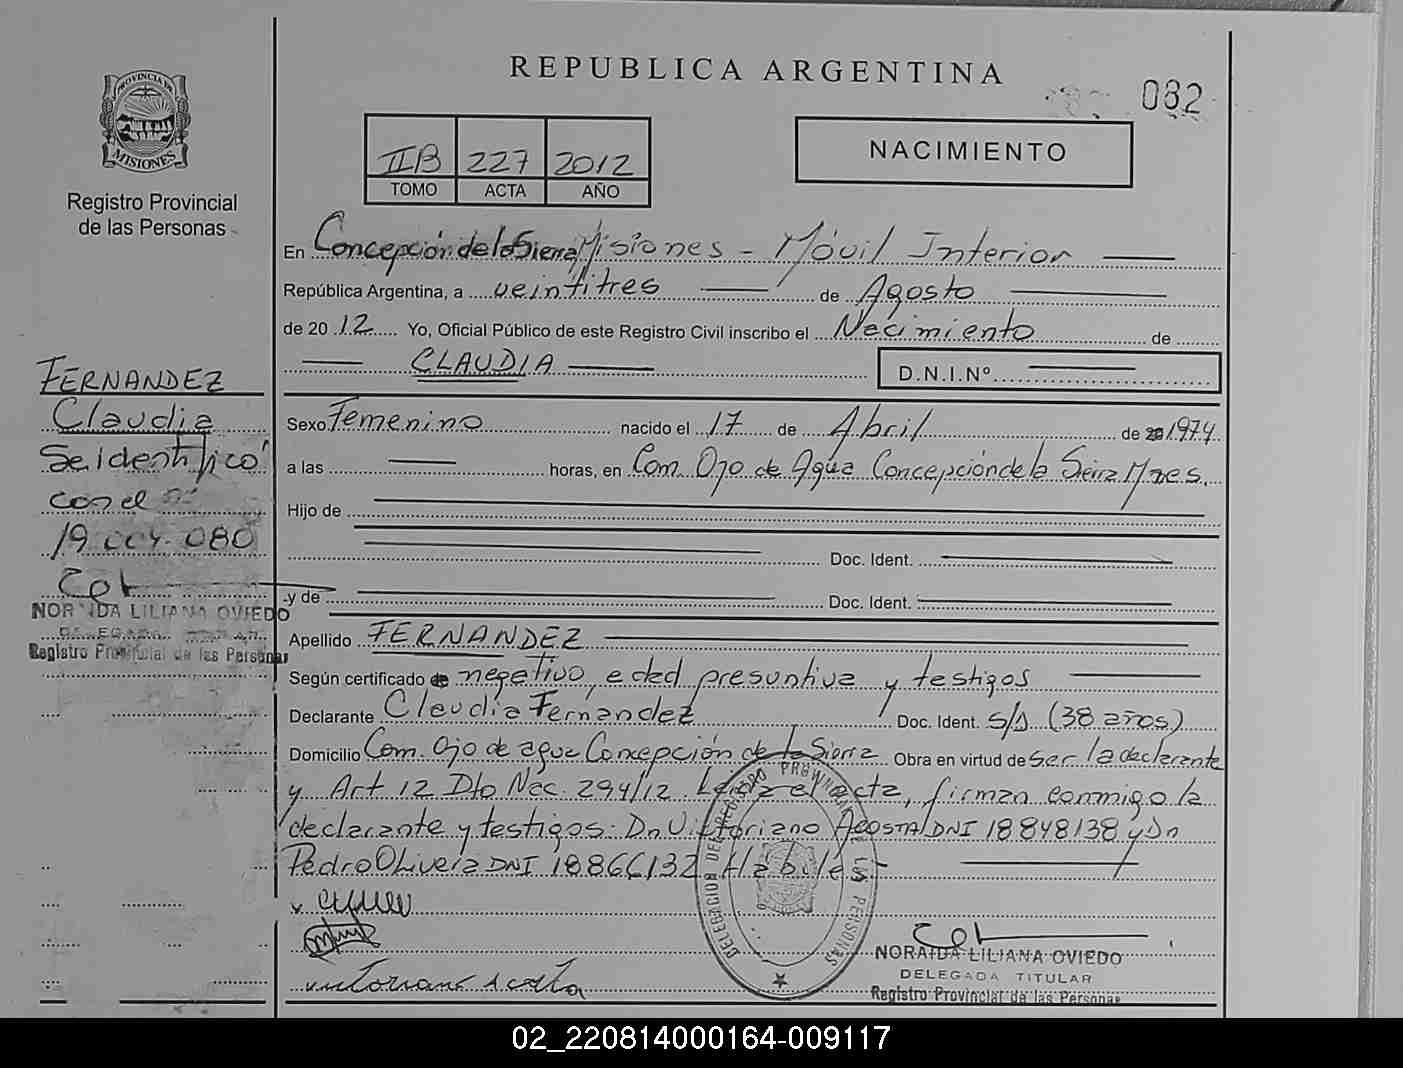 REPUBLICA ARGENTINA
082
PROVINCIA DE
MISIONES
Registro Provincial
de las Personas
IIB 227 2012
TOMO ACTA AÑO
NACIMIENTO
En Concepción de la Sierra Misiones - Móvil Interior
República Argentina, a veintitres de Agosto
de 2012 Yo, Oficial Público de este Registro Civil inscribo el Nacimiento de
CLAUDIA
D.N.I.Nº
Sexo Femenino nacido el 17 de Abril de 1974
a las horas, en Com. Ojo de Agua Concepción de la Sierra Mnes.
Hijo de
Doc. Ident.
y de Doc. Ident.
Apellido FERNANDEZ
Según certificado de negativo, edad presuntiva y testigos
Declarante Claudia Fernandez Doc. Ident. S/D (38 años)
Domicilio Com. Ojo de agua Concepción de la Sierra Obra en virtud de ser la declarante
y Art 12 Dto Nac. 294/12 Leída el acta, firman conmigo la
declarante y testigos: Dn Victoriano ACOSTA DNI 18848138 y Dn
Pedro Olivera DNI 18866132 Habiles
victoriano acosta
DELEGACION DEL REGISTRO PROVINCIAL DE LAS PERSONAS
NORAIDA LILIANA OVIEDO
DELEGADA TITULAR
Registro Provincial de las Personas
FERNANDEZ
Claudia
Se identificó
con el
19.004.080
NORAIDA LILIANA OVIEDO
DELEGADA TITULAR
Registro Provincial de las Personas
02_220814000164-009117